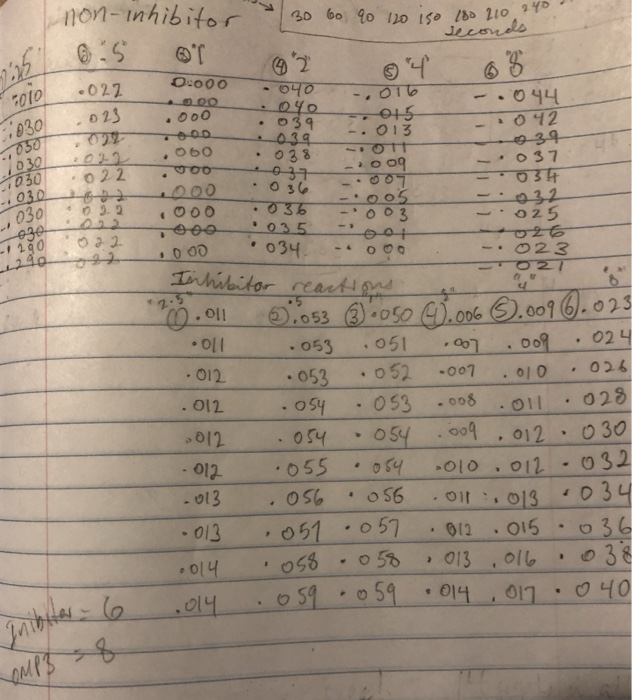 non-inhibitor → 30 60 90 120 150 180 210 240
seconds
② .5 ③ "1" ④ "2" ⑤ "4" ⑥ "8"
.010 .022 0.000 .040 -.016 -.044
.030 .023 .000 .040 -.015 -.042
.030 .022 .000 .039 -.013 -.039
.030 .022 .000 .039 -.011 -.037
.030 .022 .000 .038 -.009 -.034
.030 .022 .000 .037 -.007 -.032
.030 .022 .000 .036 -.005 -.025
.030 .022 .000 .036 -.003 -.026
.290 .022 .000 .035 -.001 -.023
.290 .022 .000 .034 -.000 -.021
Inhibitor reactions "4" "8"
"2.5" .5 "1" "2"
① .011 ② .053 ③ .050 ④ .006 ⑤ .009 ⑥ .023
.011 .053 .051 .007 .009 .024
.012 .053 .052 .007 .010 .026
.012 .054 .053 .008 .011 .028
.012 .054 .054 .009 .012 .030
.012 .055 .054 .010 .012 .032
.013 .056 .056 .011 .013 .034
.013 .057 .057 .012 .015 .036
.014 .058 .058 .013 .016 .038
.014 .059 .059 .014 .017 .040
Inibitor = 6
OMP3 = 8